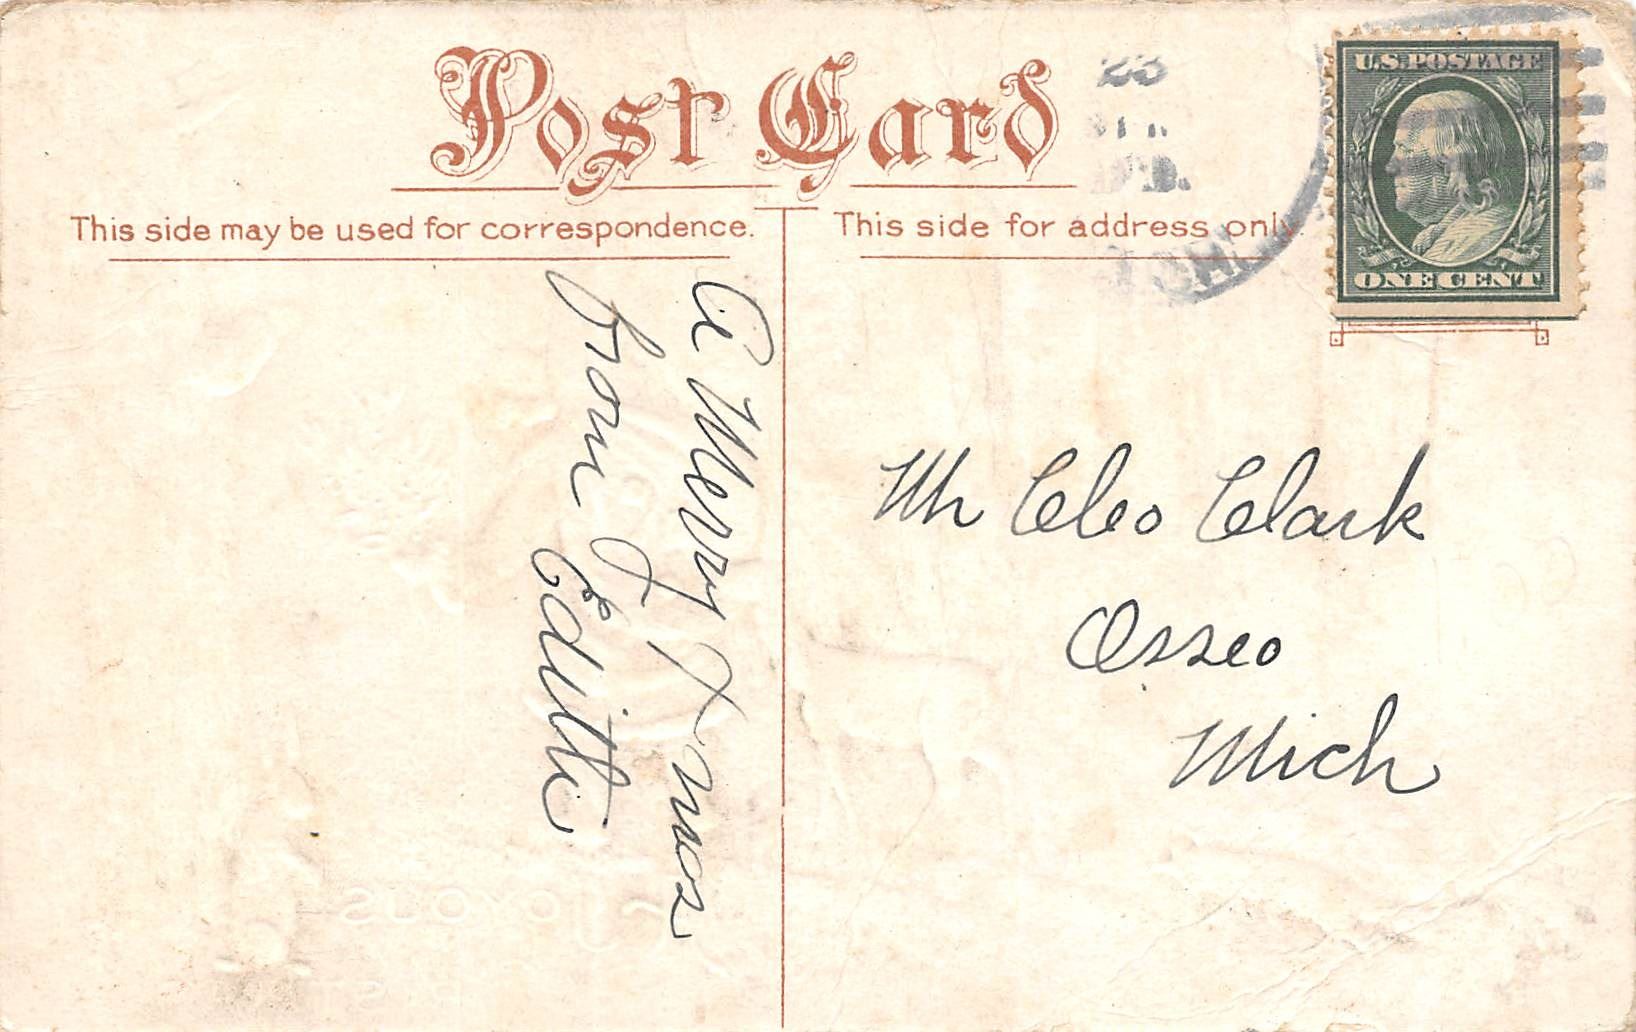 Post Card
This side may be used for correspondence.
This side for address only.
U.S. POSTAGE
ONE CENT
23
A Merry Xmas
from
Edith
Mr Cleo Clark
Osseo
Mich
JOYOUS